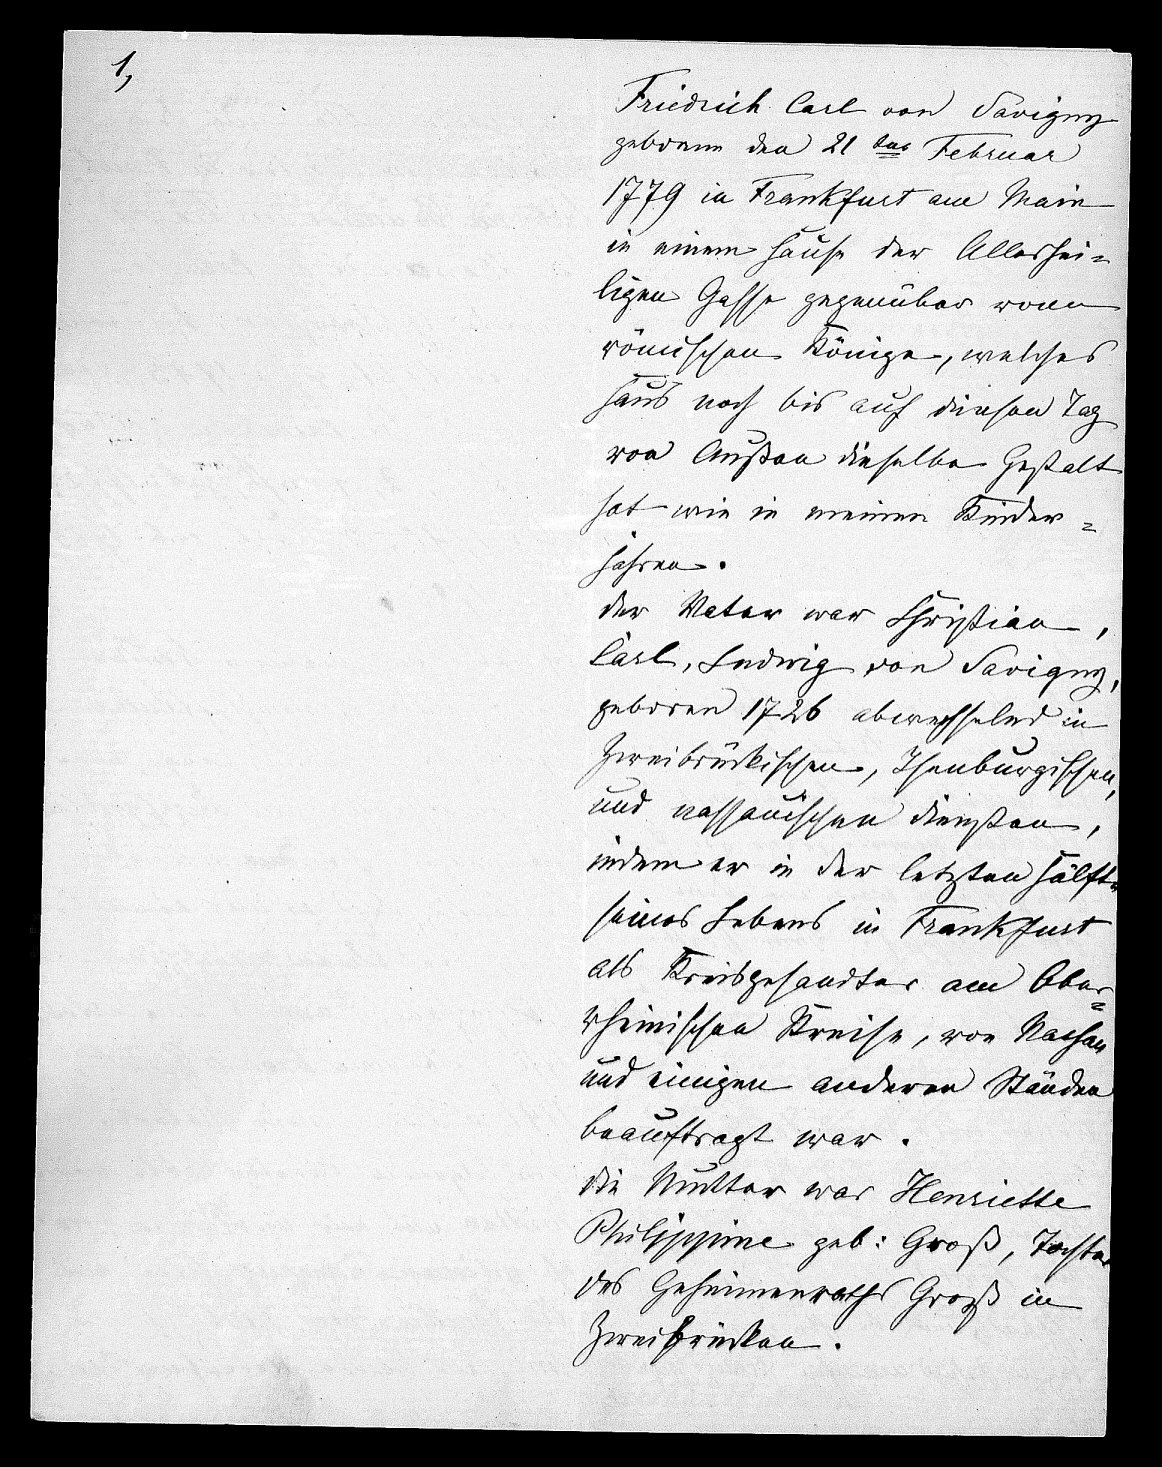 1,
Friedrich Carl von Savigny
geboren den 21 ten Februar
1779 in Frankfurt am Main
in einem Hause der Allerhei=
ligen Gasse gegenüber vom
römischen Könige, welches
Haus noch bis auf diesen Tag
von Außen dieselbe Gestalt
hat wie in meinen Kinder=
jahren.
der Vater war Christian,
Carl, Ludwig von Savigny,
geboren 1726 abwechselnd in
Zweibrückischen, Isenburgischen,
und nassauischen diensten,
indem er in der letzten Hälfte
seines Lebens in Frankfurt
als Kreisgesandter am Ober=
rheinischen Kreise, von Nassau
und einigen anderen Ständen
beauftragt war.
die Mutter war Henriette
Philippine geb: Groß, Tochter
des Geheimenraths Groß in
Zweibrücken.